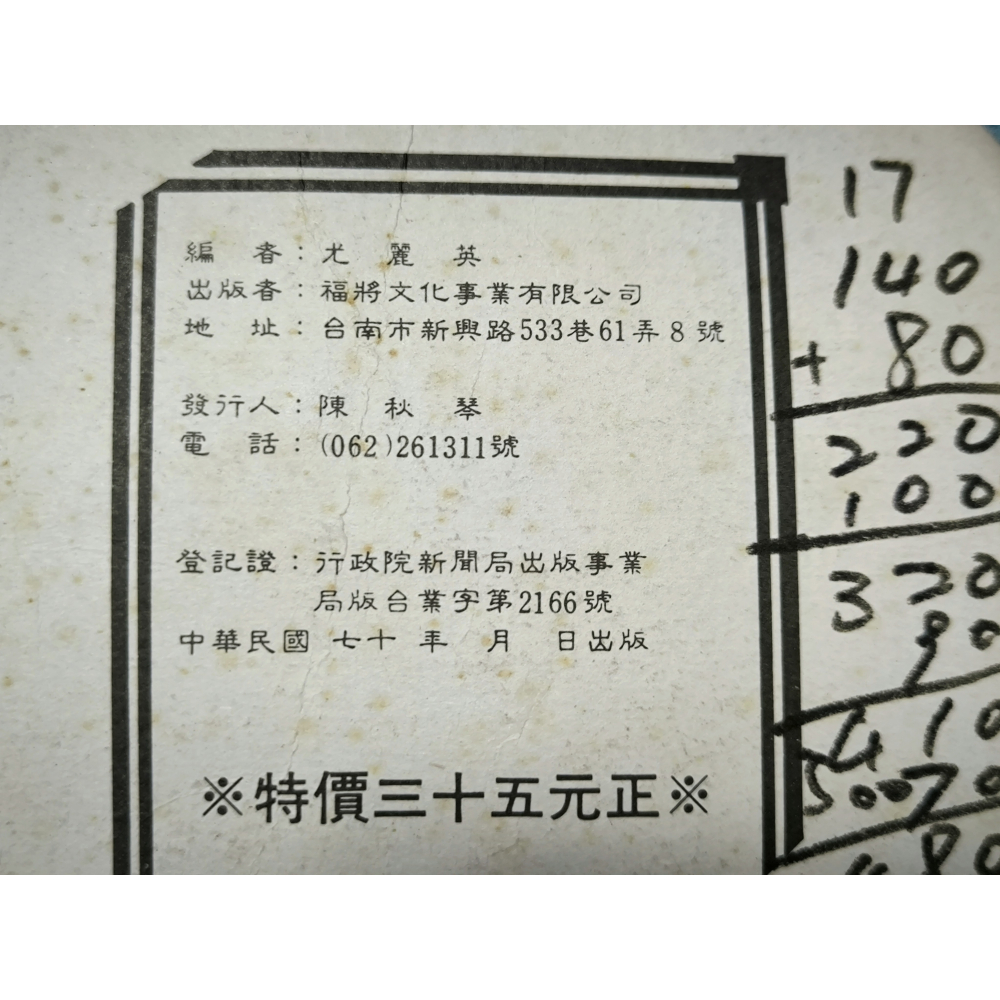 編　者：尤　麗　英
出版者：福將文化事業有限公司
地　址：台南市新興路533巷61弄8號
發行人：陳　秋　琴
電　話：(062)261311號
登記證：行政院新聞局出版事業
局版台業字第2166號
中華民國 七十 年　月　日出版
※特價三十五元正※
17
140
+ 80
220
100
320
90
410
50070